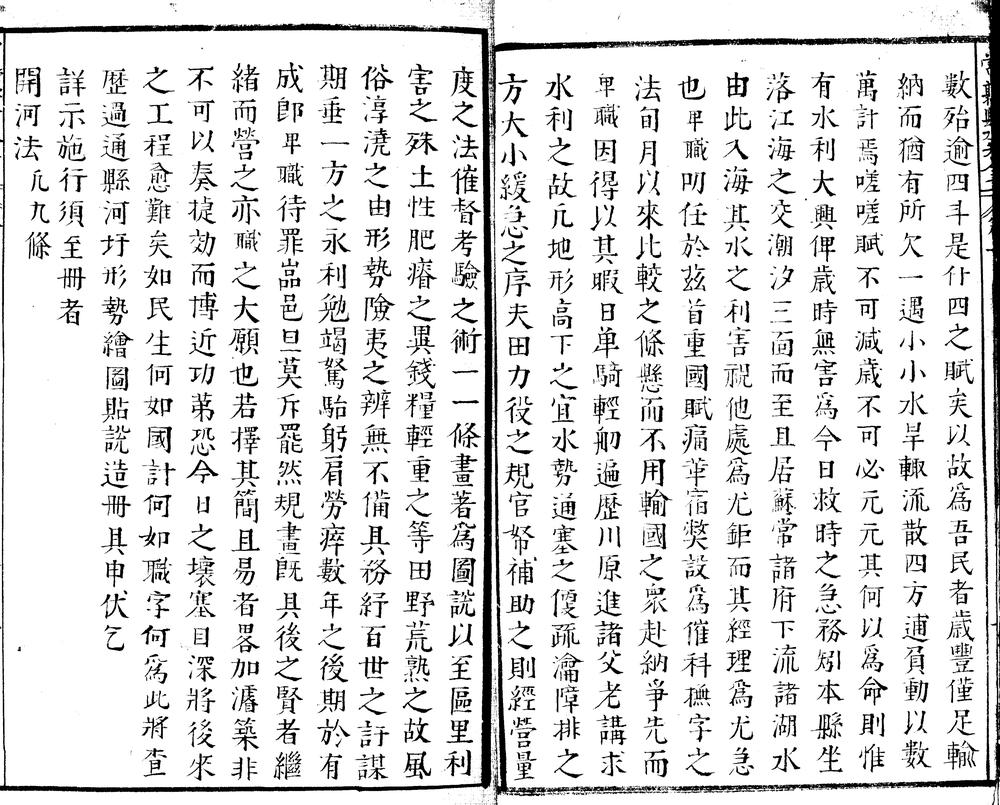 數殆逾四斗是什四之賦矣以故爲吾民者歲豐僅足輸
納而猶有所欠一遇小小水旱輙流散四方逋負動以數
萬計焉嗟嗟賦不可減歲不可必元元其何以爲命則惟
有水利大興俾歲時無害爲今日救時之急務矧本縣坐
落江海之交潮汐三面而至且居蘇常諸府下流諸湖水
由此入海其水之利害視他處爲尤鉅而其經理爲尤急
也卑職叨任於茲首重國賦痛革宿獘設爲催科撫字之
法旬月以來比較之條懸而不用輸國之衆赴納爭先而
卑職因得以其暇日单騎輕舠遍歷川原進諸父老講求
水利之故凢地形高下之宜水勢通塞之便疏瀹障排之
方大小緩急之序夫田力役之規官帑補助之則經營量
度之法催督考驗之術一一條畫著爲圖說以至區里利
害之殊土性肥瘠之異錢糧輕重之等田野荒熟之故風
俗淳澆之由形勢險夷之辨無不備具務紓百世之訏謀
期垂一方之永利勉竭駑駘躬肩勞瘁數年之後期於有
成卽卑職待罪嵓邑旦莫斥罷然規畫旣具後之賢者繼
緒而營之亦職之大願也若擇其簡且易者畧加濬築非
不可以奏捷効而博近功第恐今日之壞塞日深將後來
之工程愈難矣如民生何如國計何如職字何爲此將查
歷過通縣河圩形勢繪圖貼說造冊具申伏乞
詳示施行須至冊者
開河法 凢九條